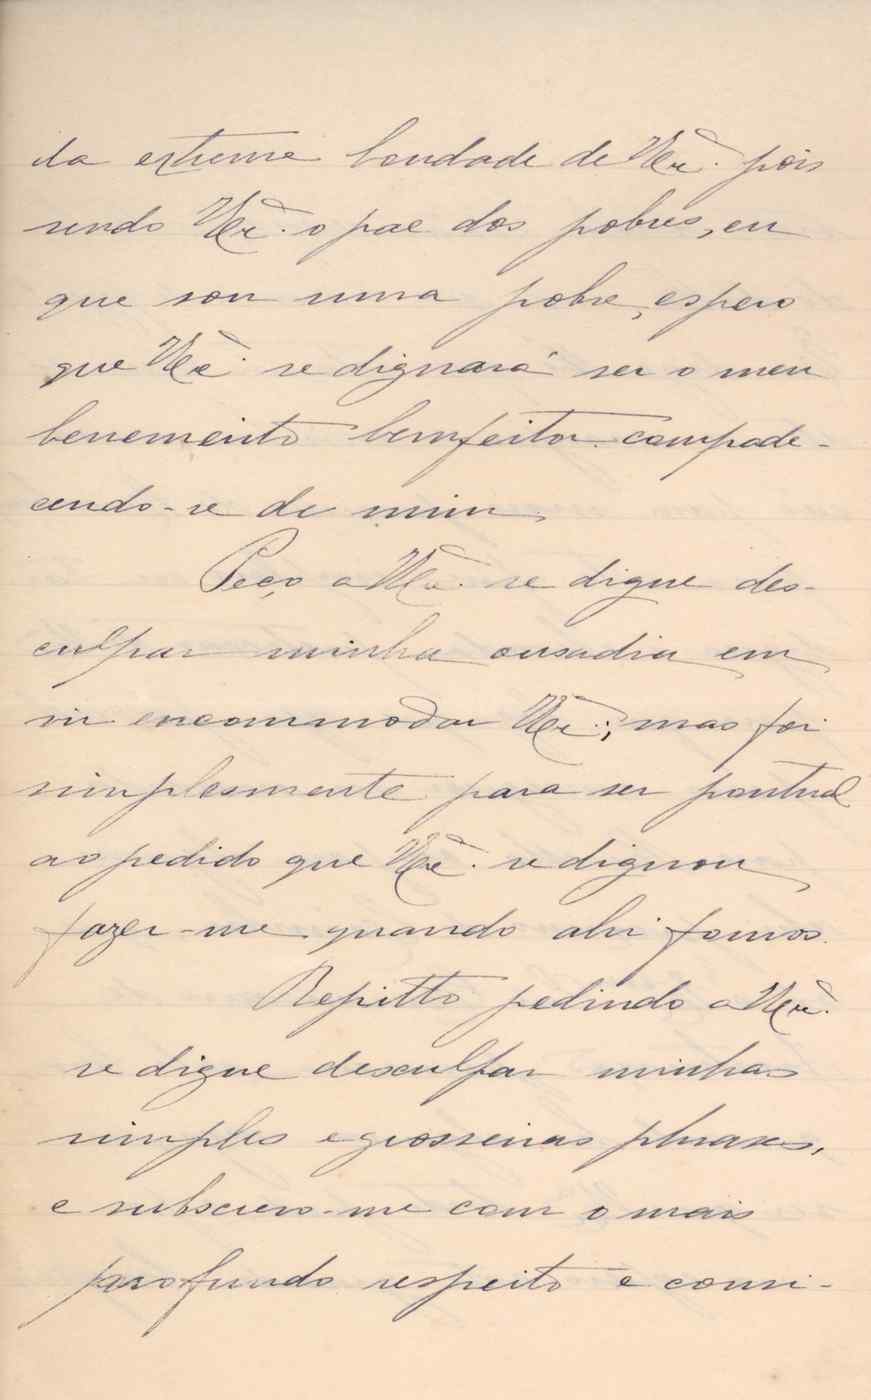 da extreme bondade de V. Exª. pois
sendo V. Exª. o pae dos pobres, eu
que sou uma pobre, espero
que V. Exª. se dignará ser o meu
benemerito bemfeitor compade-
cendo-se de mim.
Peço a V. Exª. se digne des-
culpar minha ousadia em
vir encommodar V. Exª.; mas foi
simplesmente para ser pontual
ao pedido que V. Exª. se dignou
fazer-me quando ahi fomos.
Repitto pedindo a V. Exª.
se digne desculpar minhas
simples e grosseiras phrases,
e subscrevo-me com o mais
profundo respeito e consi-